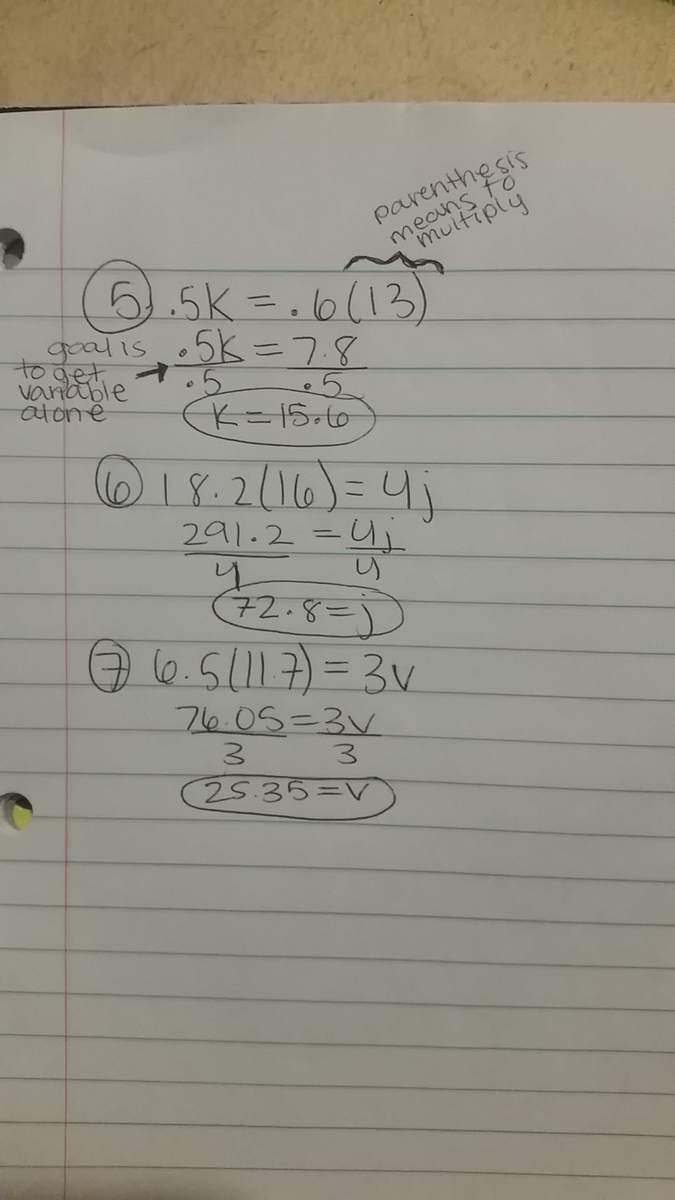 parenthesis
means to
multiply
5 .5K = .6(13)
goal is
to get
variable
alone
→
.5K = 7.8
.5 .5
K = 15.6
6 18.2(16) = 4j
291.2 = 4j
4 4
72.8 = j
7 6.5(11.7) = 3v
76.05 = 3v
3 3
25.35 = v